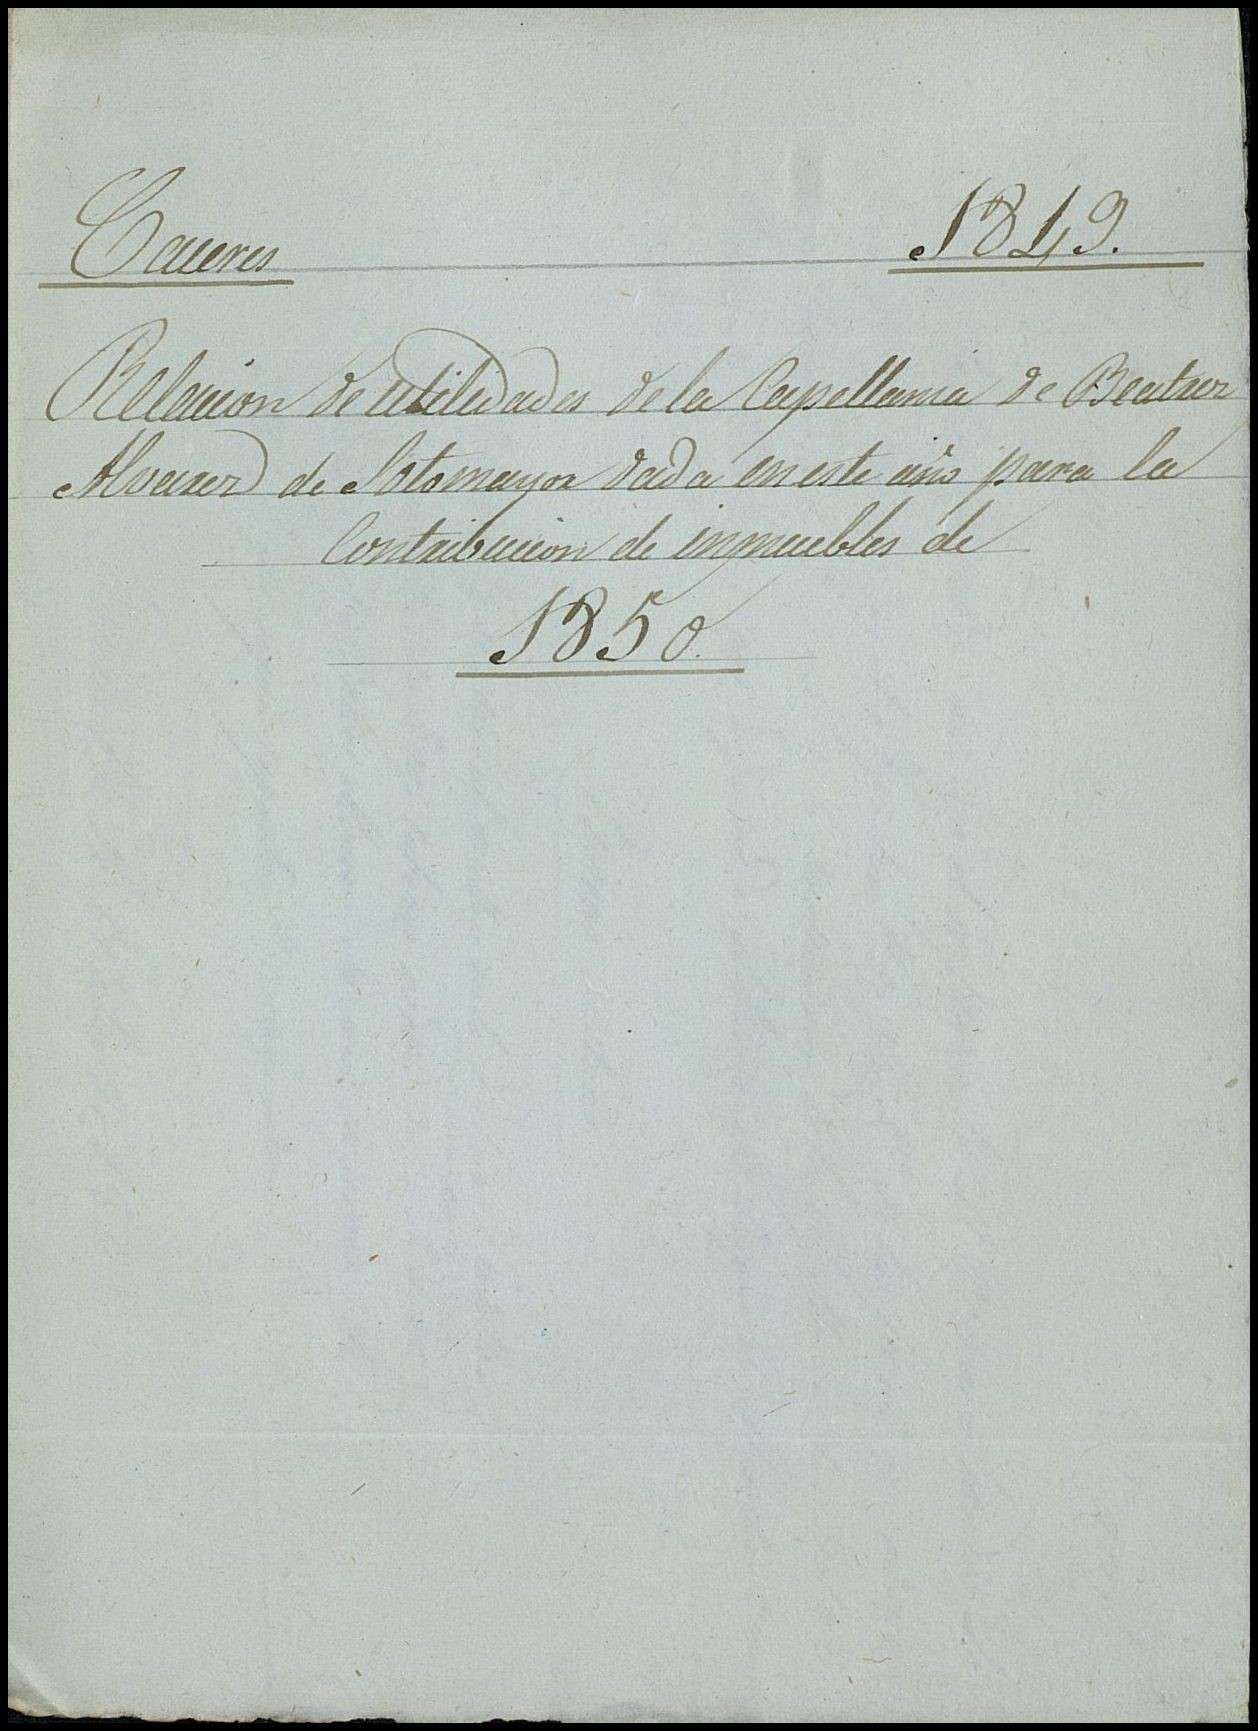 Caceres 1849.
Relacion de utilidades de la Capellania de Beatriz
Alvarez de Sotomayor dada en este año para la
Contribucion de inmuebles de
1850.